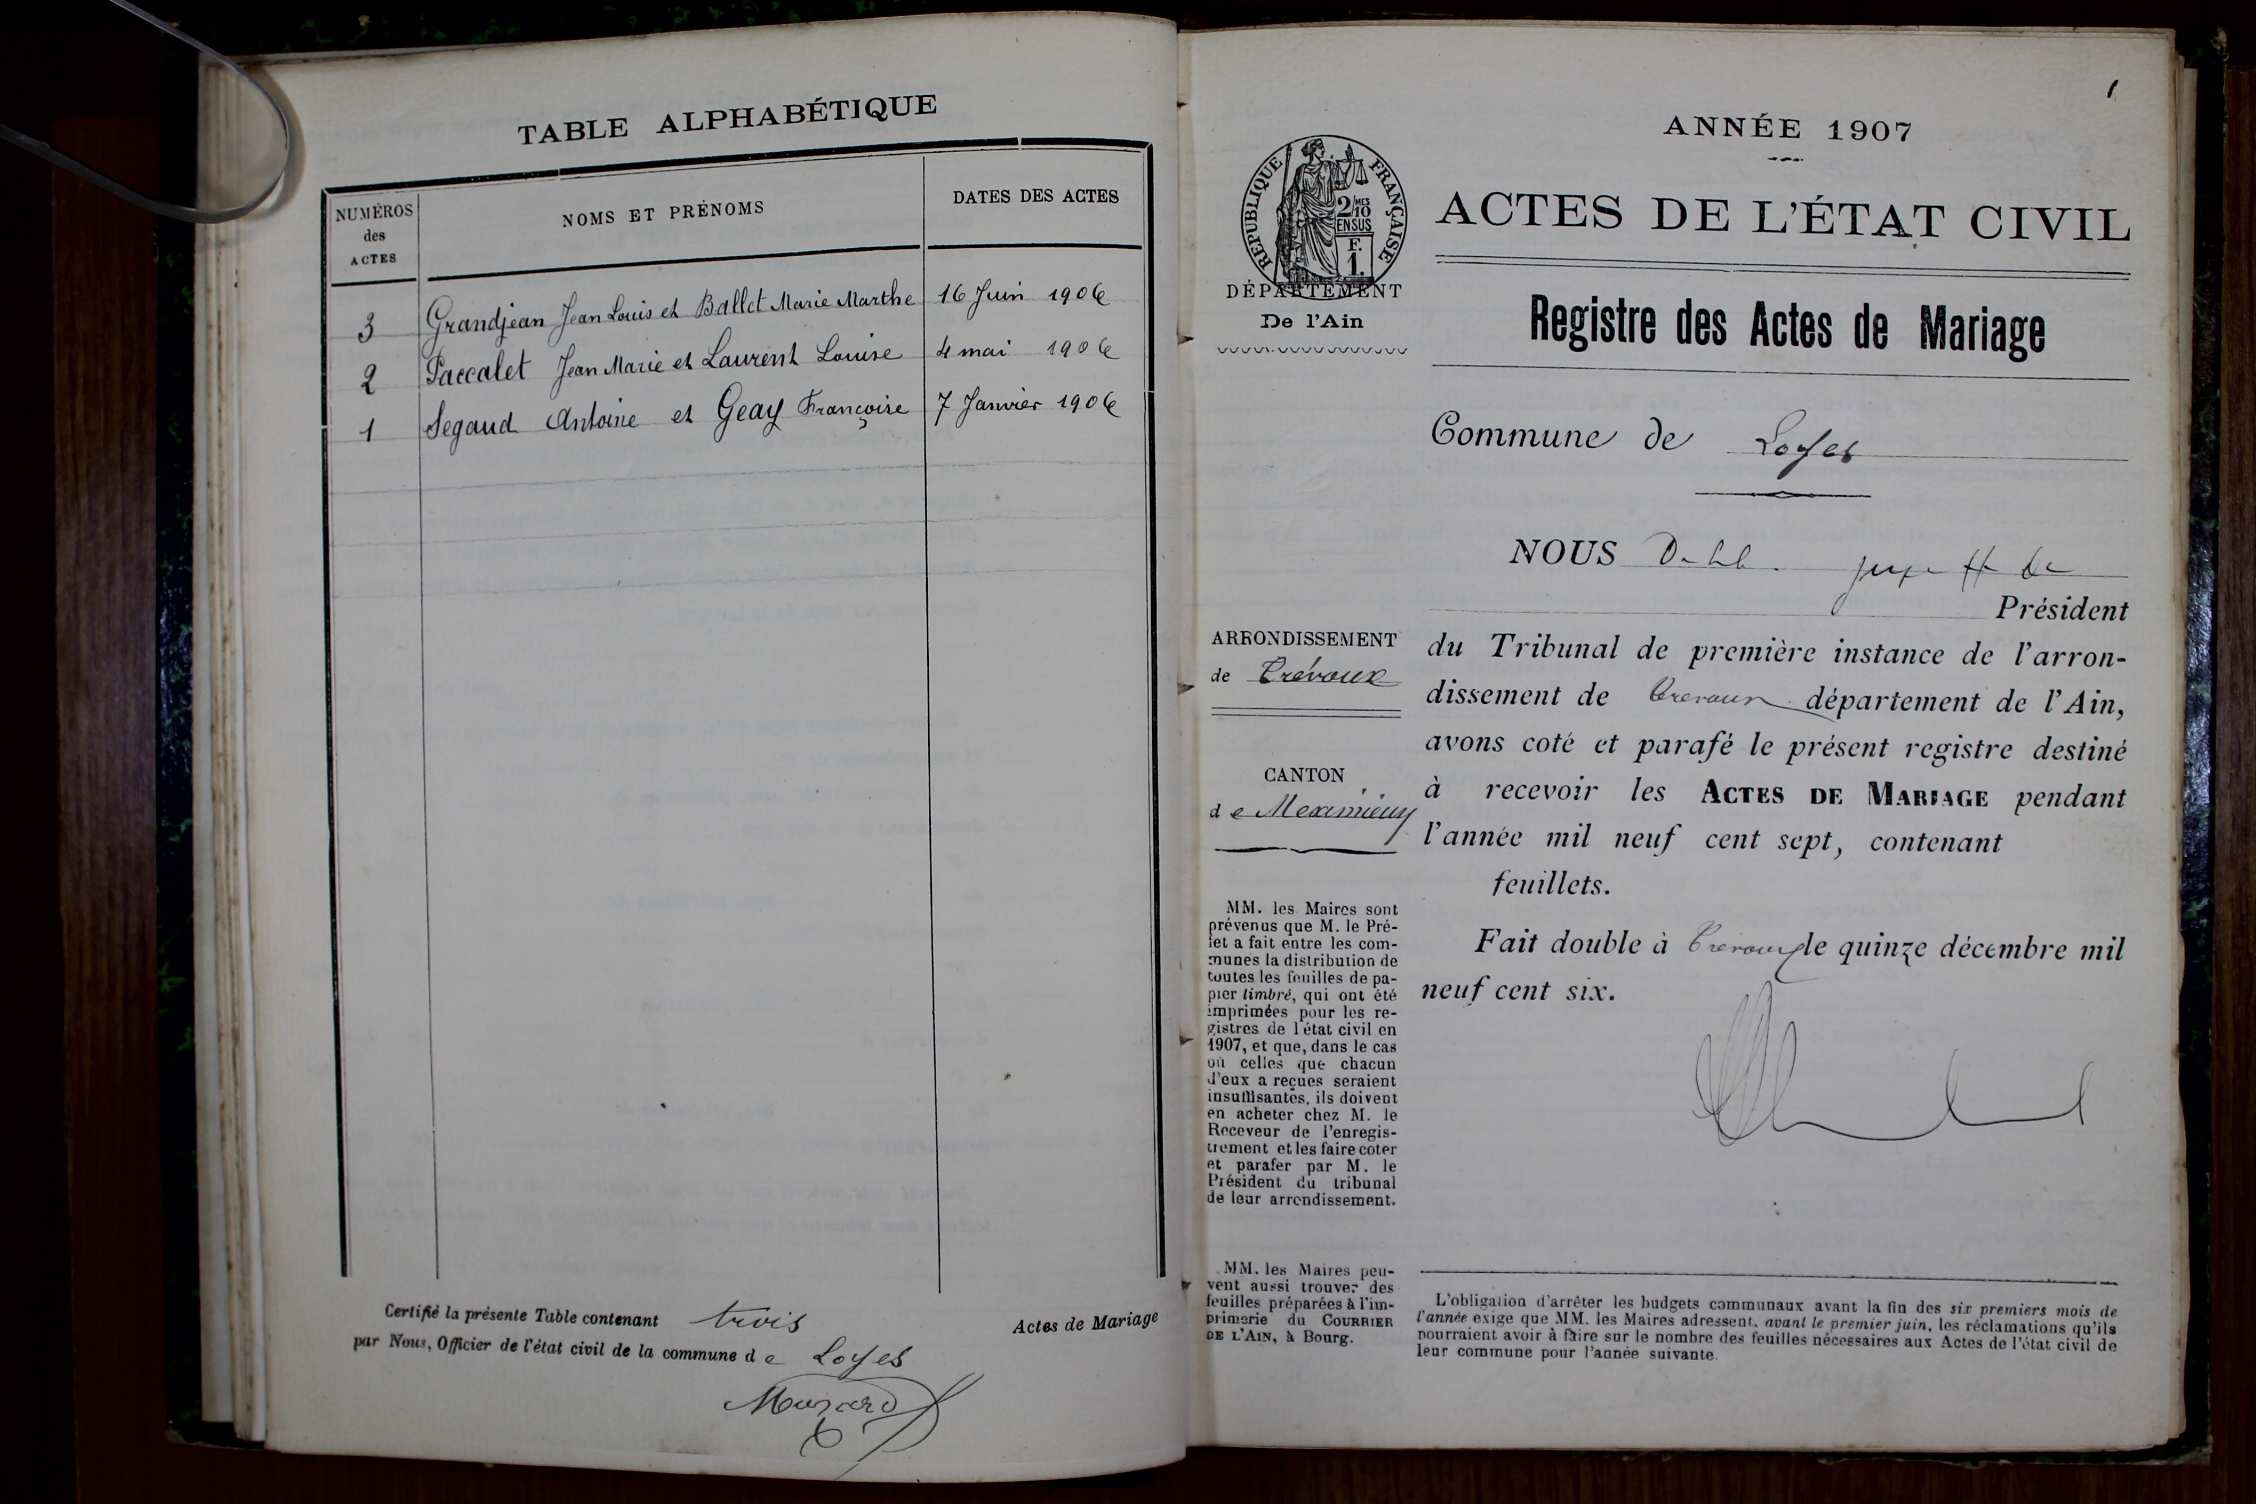 TABLE ALPHABÉTIQUE
NUMÉROS
des
ACTES
NOMS ET PRÉNOMS
DATES DES ACTES
3 Grandjean Jean Louis et Ballet Marie Marthe 16 Juin 1906
2 Paccalet Jean Marie et Laurent Louise 4 mai 1906
1 Segaud Antoine et Geay Françoise 7 Janvier 1906
Certifié la présente Table contenant trois Actes de Mariage
par Nous, Officier de l'état civil de la commune de Loyes
1
ANNÉE 1907
RÉPUBLIQUE FRANÇAISE
2/10 MES
EN SUS
F.
1.
ACTES DE L'ÉTAT CIVIL
DÉPARTEMENT
De l'Ain
Registre des Actes de Mariage
Commune de Loyes
NOUS
Président
ARRONDISSEMENT
de Trévoux
du Tribunal de première instance de l'arron-
dissement de Trevoux département de l'Ain,
avons coté et parafé le présent registre destiné
CANTON
de Meximieux
à recevoir les ACTES DE MARIAGE pendant
l'année mil neuf cent sept, contenant
feuillets.
Fait double à Trevoux le quinze décembre mil
neuf cent six.
MM. les Maires sont
prévenus que M. le Pré-
fet a fait entre les com-
munes la distribution de
toutes les feuilles de pa-
pier timbré, qui ont été
imprimées pour les re-
gistres de l'état civil en
1907, et que, dans le cas
où celles que chacun
d'eux a reçues seraient
insuffisantes, ils doivent
en acheter chez M. le
Receveur de l'enregis-
trement et les faire coter
et parafer par M. le
Président du tribunal
de leur arrondissement.
MM. les Maires peu-
vent aussi trouver des
feuilles préparées à l'im-
primerie du COURRIER
DE L'AIN, à Bourg.
L'obligation d'arrêter les budgets communaux avant la fin des six premiers mois de
l'année exige que MM. les Maires adressent, avant le premier juin, les réclamations qu'ils
pourraient avoir à faire sur le nombre des feuilles nécessaires aux Actes de l'état civil de
leur commune pour l'année suivante.